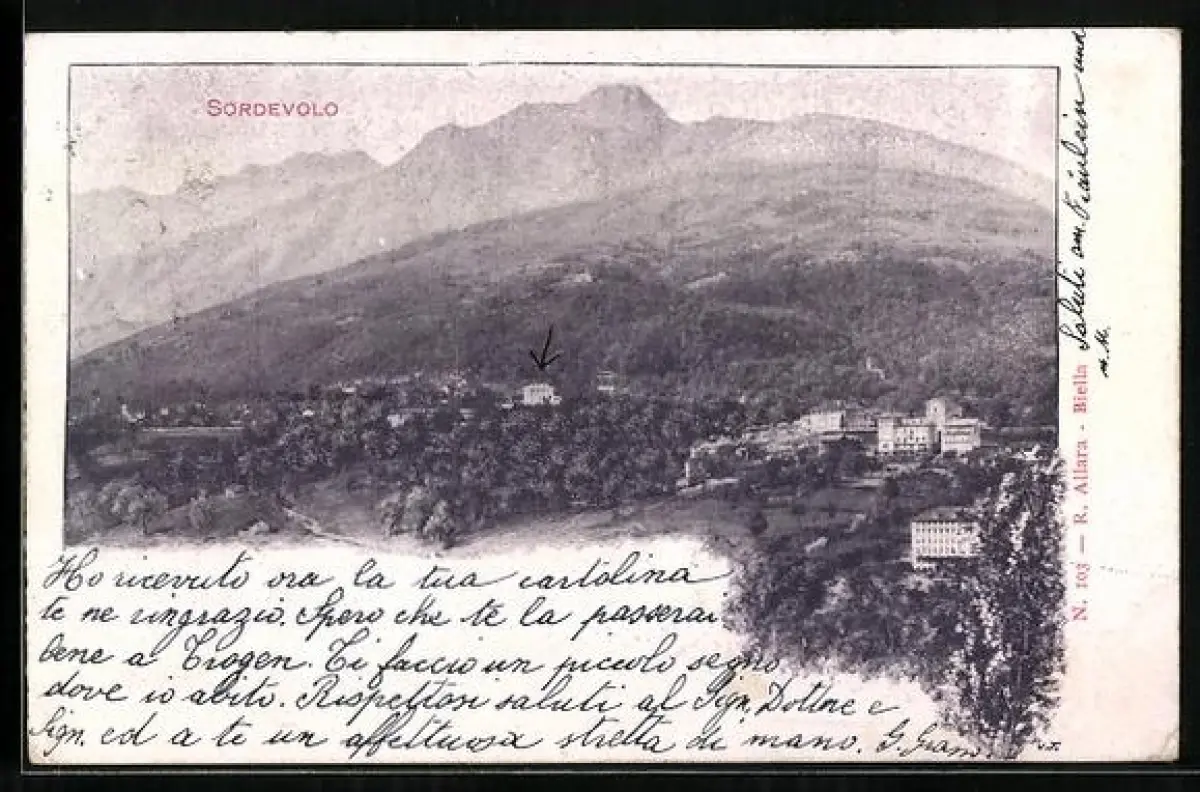 SORDEVOLO
Ho ricevuto ora la tua cartolina
te ne ringrazio. Spero che te la passerai
bene a Trogen. Ti faccio un piccolo segno
dove io abito. Rispettosi saluti al Sign. Dottore e
Sign. ed a te un affettuosa stretta di mano. G.
N. 103 — R. Allara - Biella
Saluti am. Fräulein und